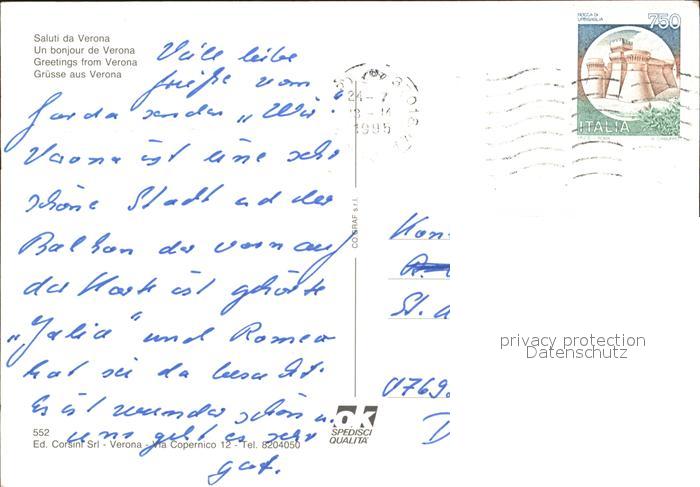 Saluti da Verona
Un bonjour de Verona
Greetings from Verona
Grüsse aus Verona
Viele liebe
Grüße vom
Gardasee senden „Wir"
Verona ist eine sehr
schöne Stadt und der
Balkon der vorn auf
der Karte ist gehörte
„Julia" und Romeo
hat sie da besucht.
Es ist wunderschön u.
uns geht es sehr
gut.
552
Ed. Corsini Srl - Verona - Via Copernico 12 - Tel. 8204050
CO.GRAF s.r.l.
ok
SPEDISCI
QUALITÀ
24-7
1995
ROCCA DI
URBISAGLIA
750
ITALIA
St.
D
privacy protection
Datenschutz